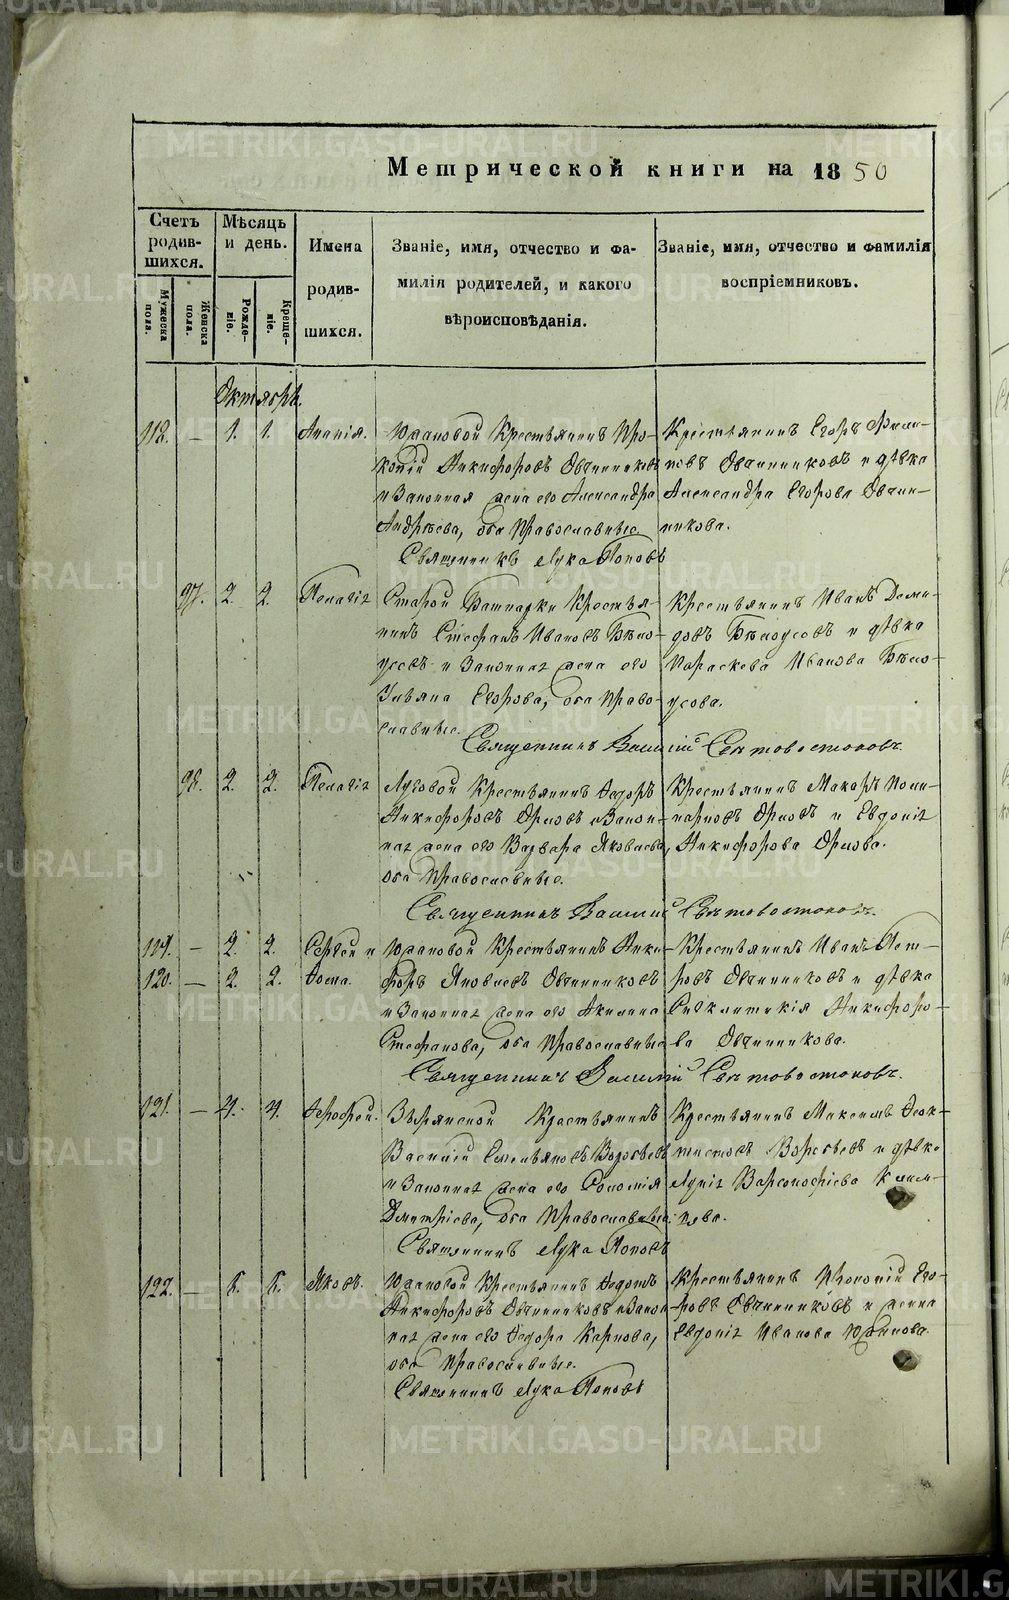 Метрической книги на 1850
Счетъ родив-шихся.
Мѣсяцъ и день.
Имена родив-шихся.
Званіе, имя, отчество и фа-
милія родителей, и какого
вѣроисповѣданія.
Званіе, имя, отчество и фамилія
воспріемниковъ.
Мужеска пола.
Женска пола.
Рожде-ніе.
Креще-ніе.
Октябрь.
118. — 1. 1. Ананія.
Крестьянинъ Про-
копій Никифоровъ Овчинниковъ
и Законная жена его Александра
Андреева, оба Православные
Священникъ Лука Поповъ
Крестьянинъ Егоръ Фили-
повъ Овчинниковъ и дѣвка
Александра Егорова Овчин-
никова.
97. 2. 2. Пелагія
Старой Крестья-
нинъ Стефанъ Ивановъ Бѣло-
усовъ и Законная жена его
Ульяна Егорова, оба Право-
славные.
Священникъ Василій Свѣтовостоковъ.
Крестьянинъ Иванъ Деми-
довъ Бѣлоусовъ и дѣвка
Параскева Иванова Бѣло-
усова.
98. 2. 2. Пелагія
Луговой Крестьянинъ Ѳедоръ
Никифоровъ Орловъ и Закон-
ная жена его Варвара Яковлева,
оба Православные.
Священникъ Василій Свѣтовостоковъ.
Крестьянинъ Макаръ Поли-
карповъ Орловъ и Евдокія
Никифорова Орлова.
119. — 2. 2. Сергѣй и
120. — 2. 2. Ѳома.
Крестьянинъ Ники-
форъ Яковлевъ Овчинниковъ
и Законная жена его Акилина
Стефанова, оба Православные
Священникъ Василій Свѣтовостоковъ.
Крестьянинъ Иванъ Пет-
ровъ Овчинниковъ и дѣвка
Синклитикія Никифоро-
ва Овчинникова.
121. — 4. 4. Ерофей.
Крестьянинъ
Василій Емельяновъ Воробьевъ
и Законная жена его Соломія
Дмитріева, оба Православные.
Священникъ Лука Поповъ
Крестьянинъ Максимъ Ѳеок-
тистовъ Воробьевъ и дѣвка
Варсонофіева
122. — 6. 6. Яковъ.
Крестьянинъ Ѳедотъ
Никифоровъ Овчинниковъ и Закон-
ная жена его Ѳедора Карпова,
оба Православные.
Священникъ Лука Поповъ
Крестьянинъ Прокопій Его-
ровъ Овчинниковъ и жена
Евдокія Иванова
METRIKI.GASO-URAL.RU